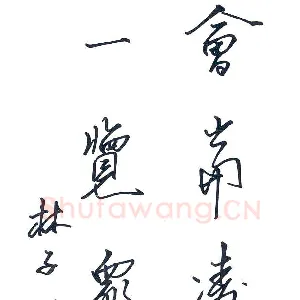 會當凌
一覽眾
林子
Shufawang.CN